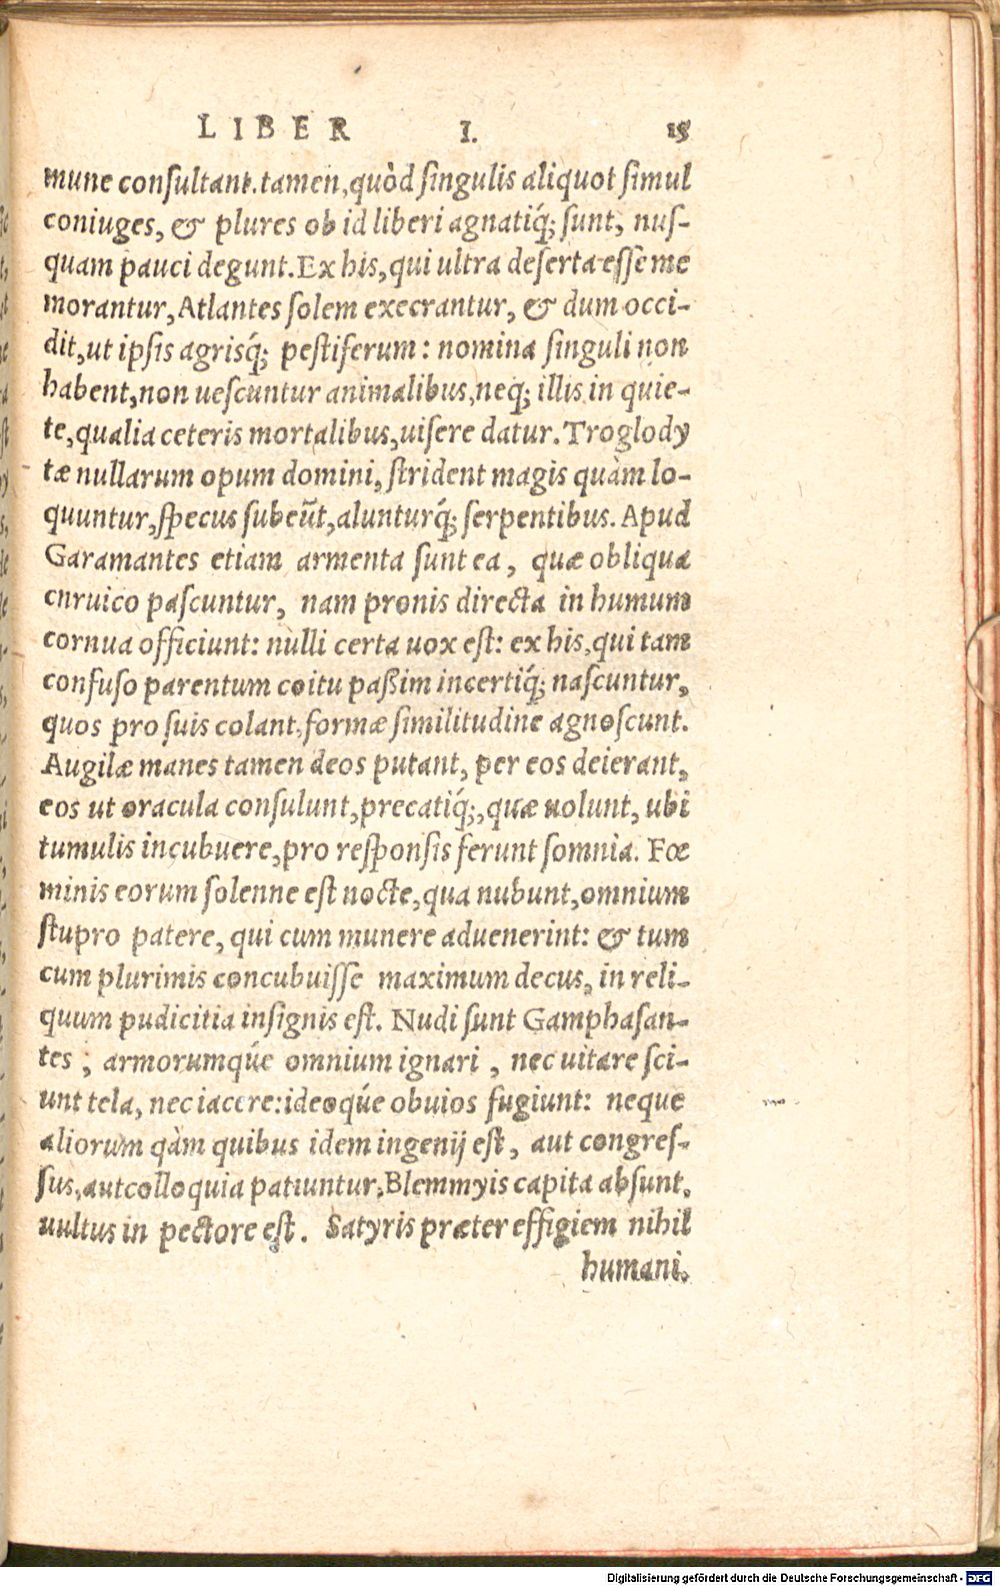 LIBER I. 15
mune conſultant. tamen, quòd ſingulis aliquot ſimul
coniuges, & plures ob id liberi agnatiq́; ſunt, nuſ-
quam pauci degunt. Ex his, qui ultra deſerta eſſe me
morantur, Atlantes ſolem execrantur, & dum occi-
dit, ut ipſis agriſq́; peſtiferum: nomina ſinguli non
habent, non ueſcuntur animalibus, neq; illis in quie-
te, qualia ceteris mortalibus, uiſere datur. Troglody
tæ nullarum opum domini, ſtrident magis quàm lo-
quuntur, ſpecus ſubeũt, alunturq́; ſerpentibus. Apud
Garamantes etiam armenta ſunt ea, quæ obliqua
cnruico paſcuntur, nam pronis directa in humum
cornua officiunt: nulli certa uox eſt: ex his, qui tam
confuſo parentum coitu paßim incertiq́; naſcuntur,
quos pro ſuis colant, formæ ſimilitudine agnoſcunt.
Augilæ manes tamen deos putant, per eos deierant,
eos ut oracula conſulunt, precatiq́;, quæ uolunt, ubi
tumulis incubuere, pro reſponſis ferunt ſomnia. Fœ
minis eorum ſolenne eſt nocte, qua nubunt, omnium
ſtupro patere, qui cum munere aduenerint: & tum
cum plurimis concubuiſſe maximum decus, in reli-
quum pudicitia inſignis eſt. Nudi ſunt Gamphaſan-
tes; armorumqúe omnium ignari, nec uitare ſci-
unt tela, nec iacere: ideoqúe obuios fugiunt: neque
aliorum qàm quibus idem ingenij eſt, aut congreſ-
ſus, aut colloquia patiuntur. Blemmyis capita abſunt,
uultus in pectore eſt. Satyris præter effigiem nihil
humani.
Digitalisierung gefördert durch die Deutsche Forschungsgemeinschaft - DFG